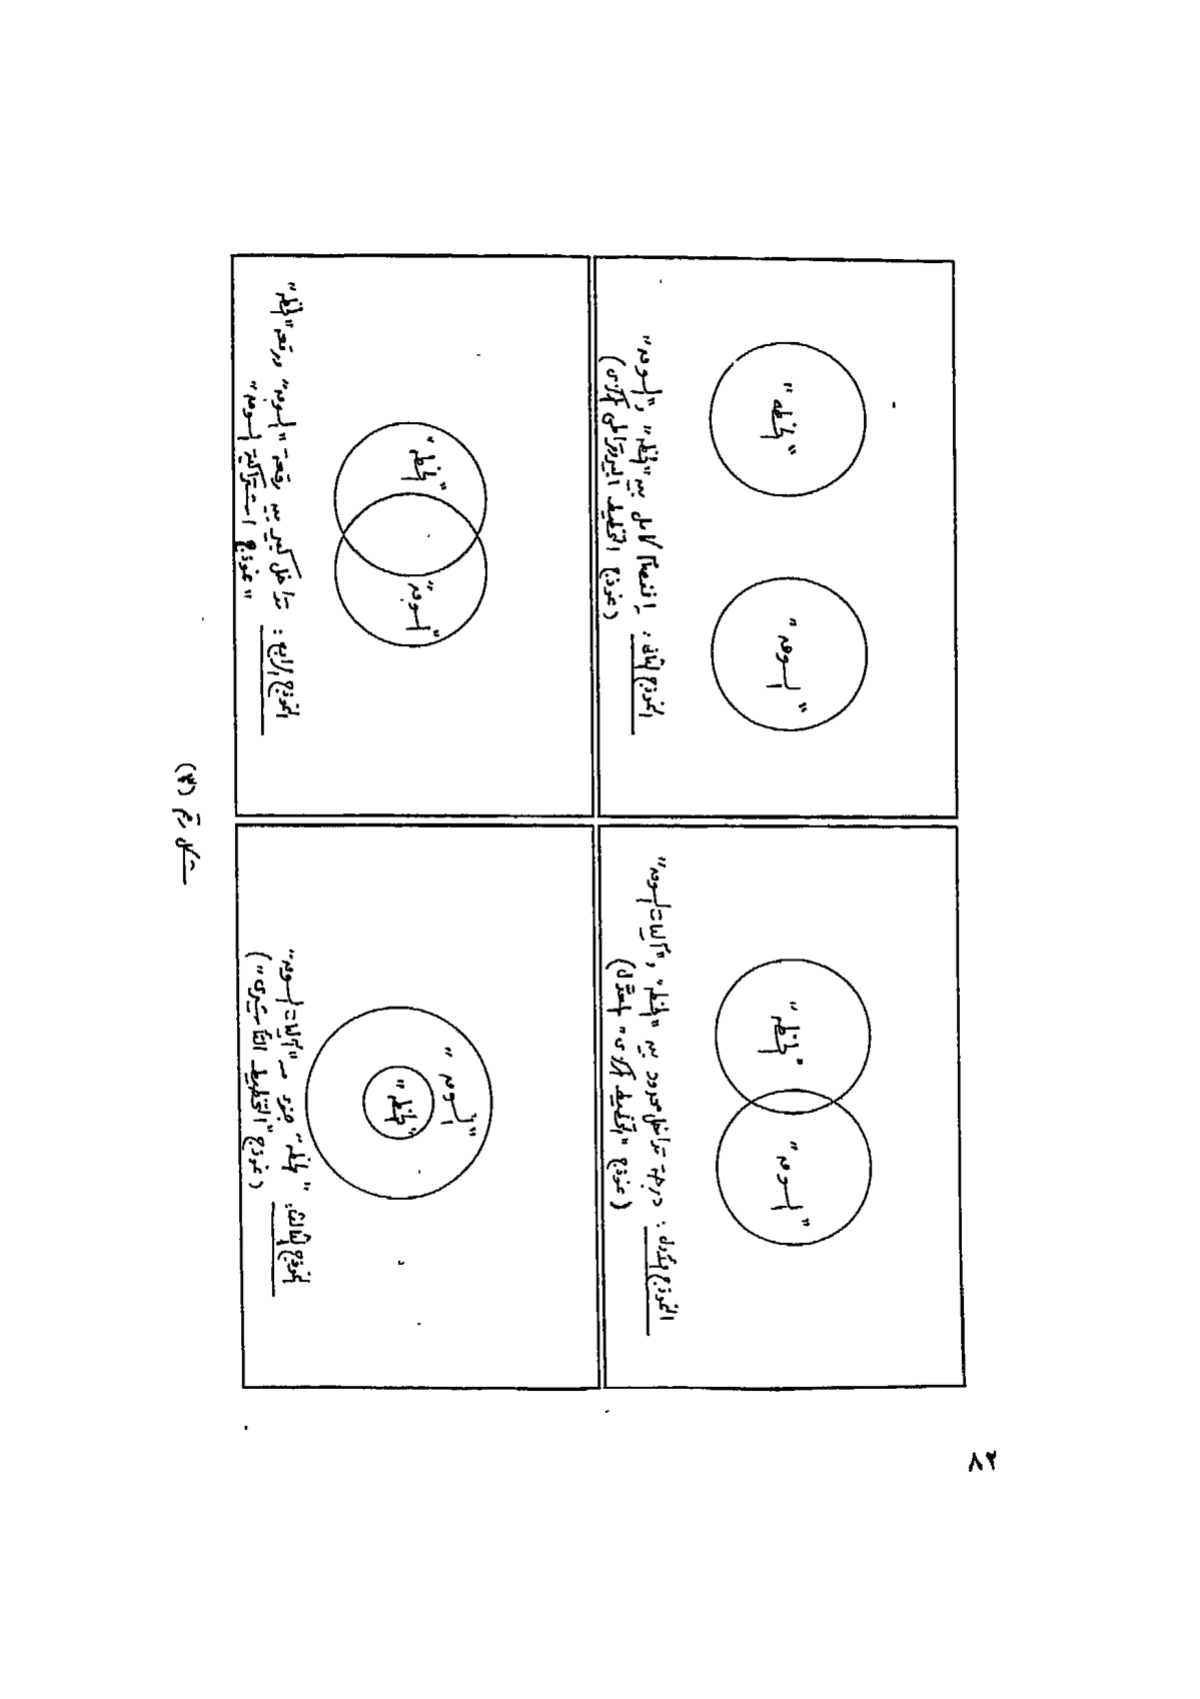 "الخطة"
"السوق"
النموذج الأول: درجة تداخل محدود بين "الخطة" و"آليات السوق"
(نموذج "التخطيط المركزى" المعتدل)
"الخطة"
"السوق"
النموذج الثانى: إنفصام كامل بين "الخطة" و"السوق"
(نموذج التخطيط البيروقراطى المركزى)
"السوق"
"الخطة"
النموذج الثالث: "الخطة" جزء من "آليات السوق"
(نموذج "التخطيط التأشيرى")
"الخطة"
"السوق"
النموذج الرابع: تداخل كبير بين رقعة "السوق" ورقعة "الخطة"
"نموذج اشتراكية السوق"
شكل رقم (٣)
٨٢